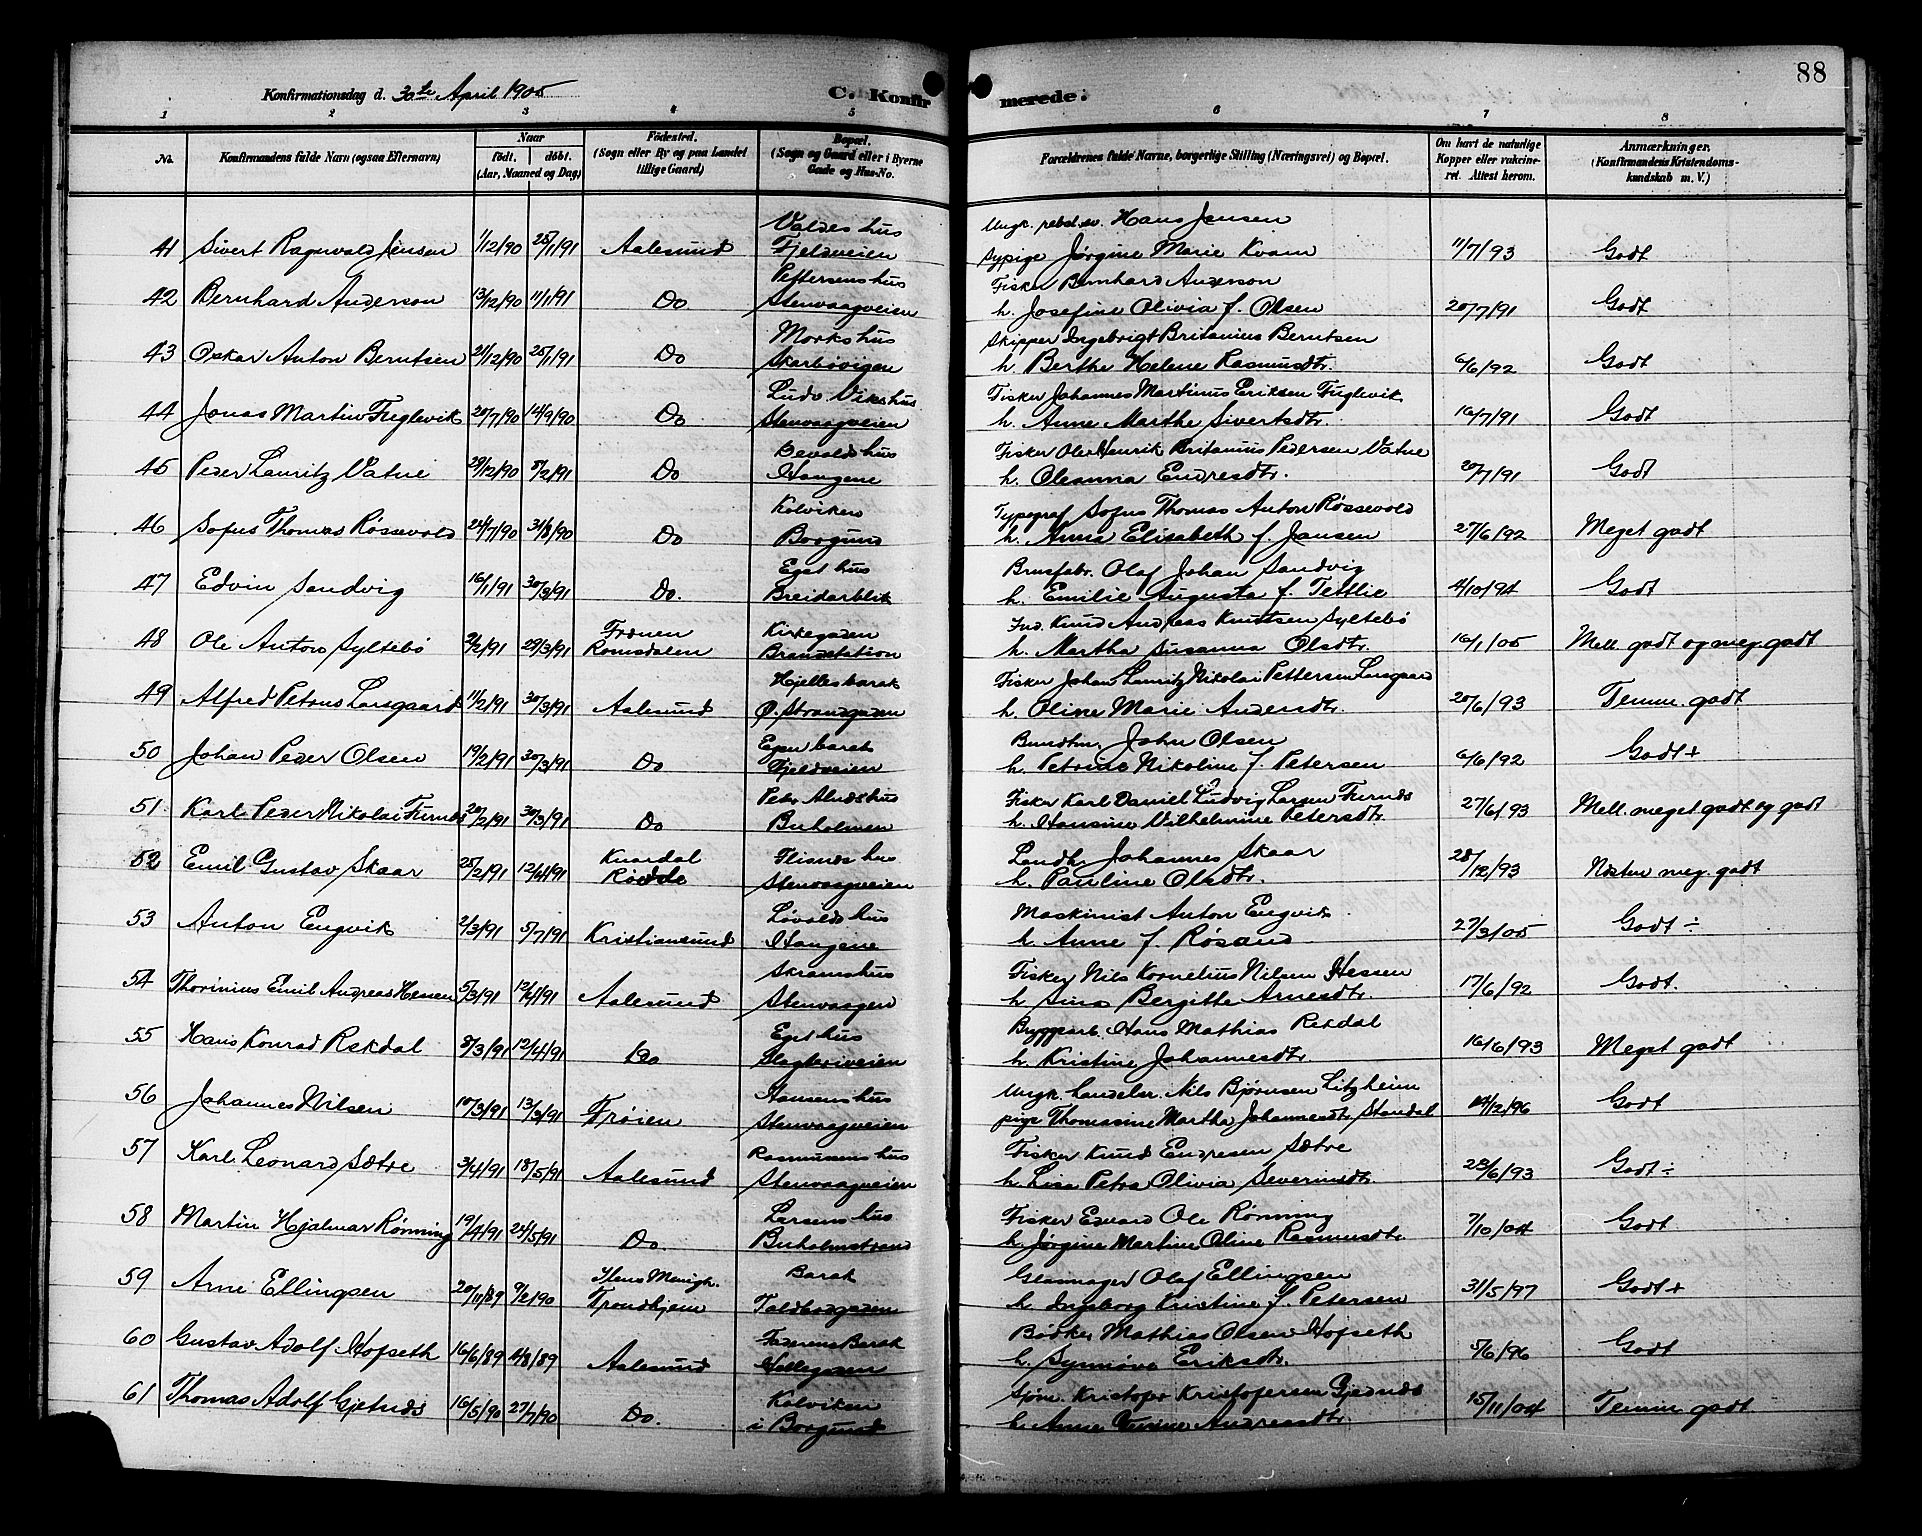 88
Konfirmationsdag d. 30te April 1905
C. Konfirmerede.
1 2 3 4 5 6 7 8
No.
Konfirmandens fulde Navn (ogsaa Efternavn)
Naar
født. døbt.
(Aar, Maaned og Dag)
Fødested.
(Sogn eller By og paa Landet
tillige Gaard)
Bopæl.
(Sogn og Gaard eller i Byerne
Gade og Hus-No.
Forældrenes fulde Navne, borgerlige Stilling (Næringsvei) og Bopæl.
Om havt de naturlige
Kopper eller vakcine-
ret. Attest herom.
Anmærkninger.
(Konfirmandens Kristendoms-
kundskab m. V.)
Valdes hus Ungk. Hans Jensen
41 Sivert Ragnvald Jensen 1/12/90 25/1/91 Aalesund Fjeldveien Sypige Jørgine Marie Kvam 11/7/93 Godt
Pettersens hus Fisker Bernhard Anderson
42 Bernhard Anderson 13/12/90 11/1/91 Do Stenvaagveien h. Josefine Olivia f. Olsen 20/7/91 Godt
Morks hus Skipper Ingebrigt Britanius Berntsen
43 Oskar Anton Berntsen 21/12/90 25/1/91 Do Skarbøvigen h. Berthe Helene Rasmusdtr. 6/6/92 Godt
Ludv. Viks hus Fisker Johannes Martinus Eriksen Fuglevik
44 Jonas Martin Fuglevik 20/7/90 14/9/90 Do Stenvaagveien h. Anne Marthe Sivertsdtr. 16/7/91 Godt
Devolds hus Fisker Ole Henrik Britanius Pedersen Vatne
45 Peder Lauritz Vatne 29/12/90 8/2/91 Do Haugene h. Oleanna Endresdtr. 20/7/91 Godt
Kolviken Typograf Sofus Thomas Anton Røssevold
46 Sofus Thomas Røssevold 24/7/90 31/8/90 Do Borgund h. Anna Elisabeth f. Jansen 27/6/92 Meget godt
Eget hus Brusfabr. Olaf Johan Sandvig
47 Edvin Sandvig 16/1/91 30/3/91 Do. Breidablik h. Emilie Augusta f. Tettlie 4/10/94 Godt
Frænen Kirkegaden Knud Andreas Knutsen Syltebø
48 Ole Anton Syltebø 2/2/91 29/3/91 Romsdalen Brandstation h. Martha Susanna Olsdtr. 16/1/05 Mell. godt og meg. godt
Hjelles barak Fisker Johan Lauritz Nikolai Pettersen Larsgaard
49 Alfred Petrus Larsgaard 11/2/91 30/3/91 Aalesund Ø. Strandgaden h. Oline Marie Andersdtr. 20/6/93 Temm. godt
Egen barak John Olsen
50 Johan Peder Olsen 19/2/91 30/3/91 Do Fjeldveien h. Petrine Nikoline f. Petersen 6/6/92 Godt+
Fisker Karl Daniel Ludvig Larsen Furnes
51 Karl Peder Nikolai Furnes 20/2/91 30/3/91 Do Buholmen h. Hansine Vilhelmine Petersdtr. 27/6/93 Mell. meget godt og godt
Kvardal Flisnes hus Landh. Johannes Skaar
52 Emil Gustav Skaar 25/2/91 12/4/91 Rødde Stenvaagveien h. Pauline Olsdtr. 28/12/93 Næsten meg. godt
Løvolds hus Maskinist Anton Engvik
53 Anton Engvik 2/3/91 5/7/91 Kristiansund Haugene h. Anne f. Røsand 27/3/05 Godt ÷
Skrams hus Fisker Nils Kornelius Nilsen Hessen
54 Thorinius Emil Andreas Hessen 5/3/91 12/4/91 Aalesund Stenvaagen h. Sina Bergitte Arnesdtr. 17/6/92 Godt.
Eget hus Bryggearb. Hans Mathias Rekdal
55 Hans Konrad Rekdal 8/3/91 12/4/91 Do Slagteriveien h. Kristine Johannesdtr 16/6/93 Meget godt
Hansens hus Ungk. handelsr. Nils Bjørnsen Litzheim
56 Johannes Nilsen 10/3/91 13/3/91 Frøien Stenvaagveien pige Thomasine Martha Johannesdtr. Standal 14/2/96 Godt
Rasmusens hus Fisker Knud Endresen Sætre
57 Karl Leonard Sætre 3/4/91 18/5/91 Aalesund Stenvaagveien h. Lise Petra Olivia Severinsdtr. 28/6/93 Godt ÷
Larsens hus Fisker Edvard Ole Rønning
58 Martin Hjalmar Rønning 19/4/91 24/5/91 Do. Buholmstrand h. Jørgine Martine Oline Rasmusdtr. 7/10/04 Godt
Ilens Menigh. Barak Olaf Ellingsen
59 Arne Ellingsen 20/11/89 9/2/90 Trondhjem Toldbodgaden h. Ingeborg Kristine f. Petersen 31/5/97 Godt+
Barak Bødker Mathias Olsen Hofseth
60 Gustav Adolf Hofseth 16/6/89 4/8/89 Aalesund h. Synnøve Eriksdtr. 5/6/96 Godt
Kolviken Kristofer Kristofersen Gjetnes
61 Thomas Adolf Gjetnes 16/5/90 27/7/90 Do. i Borgund h. Anne Andreasdtr. 15/11/04 Temm godt